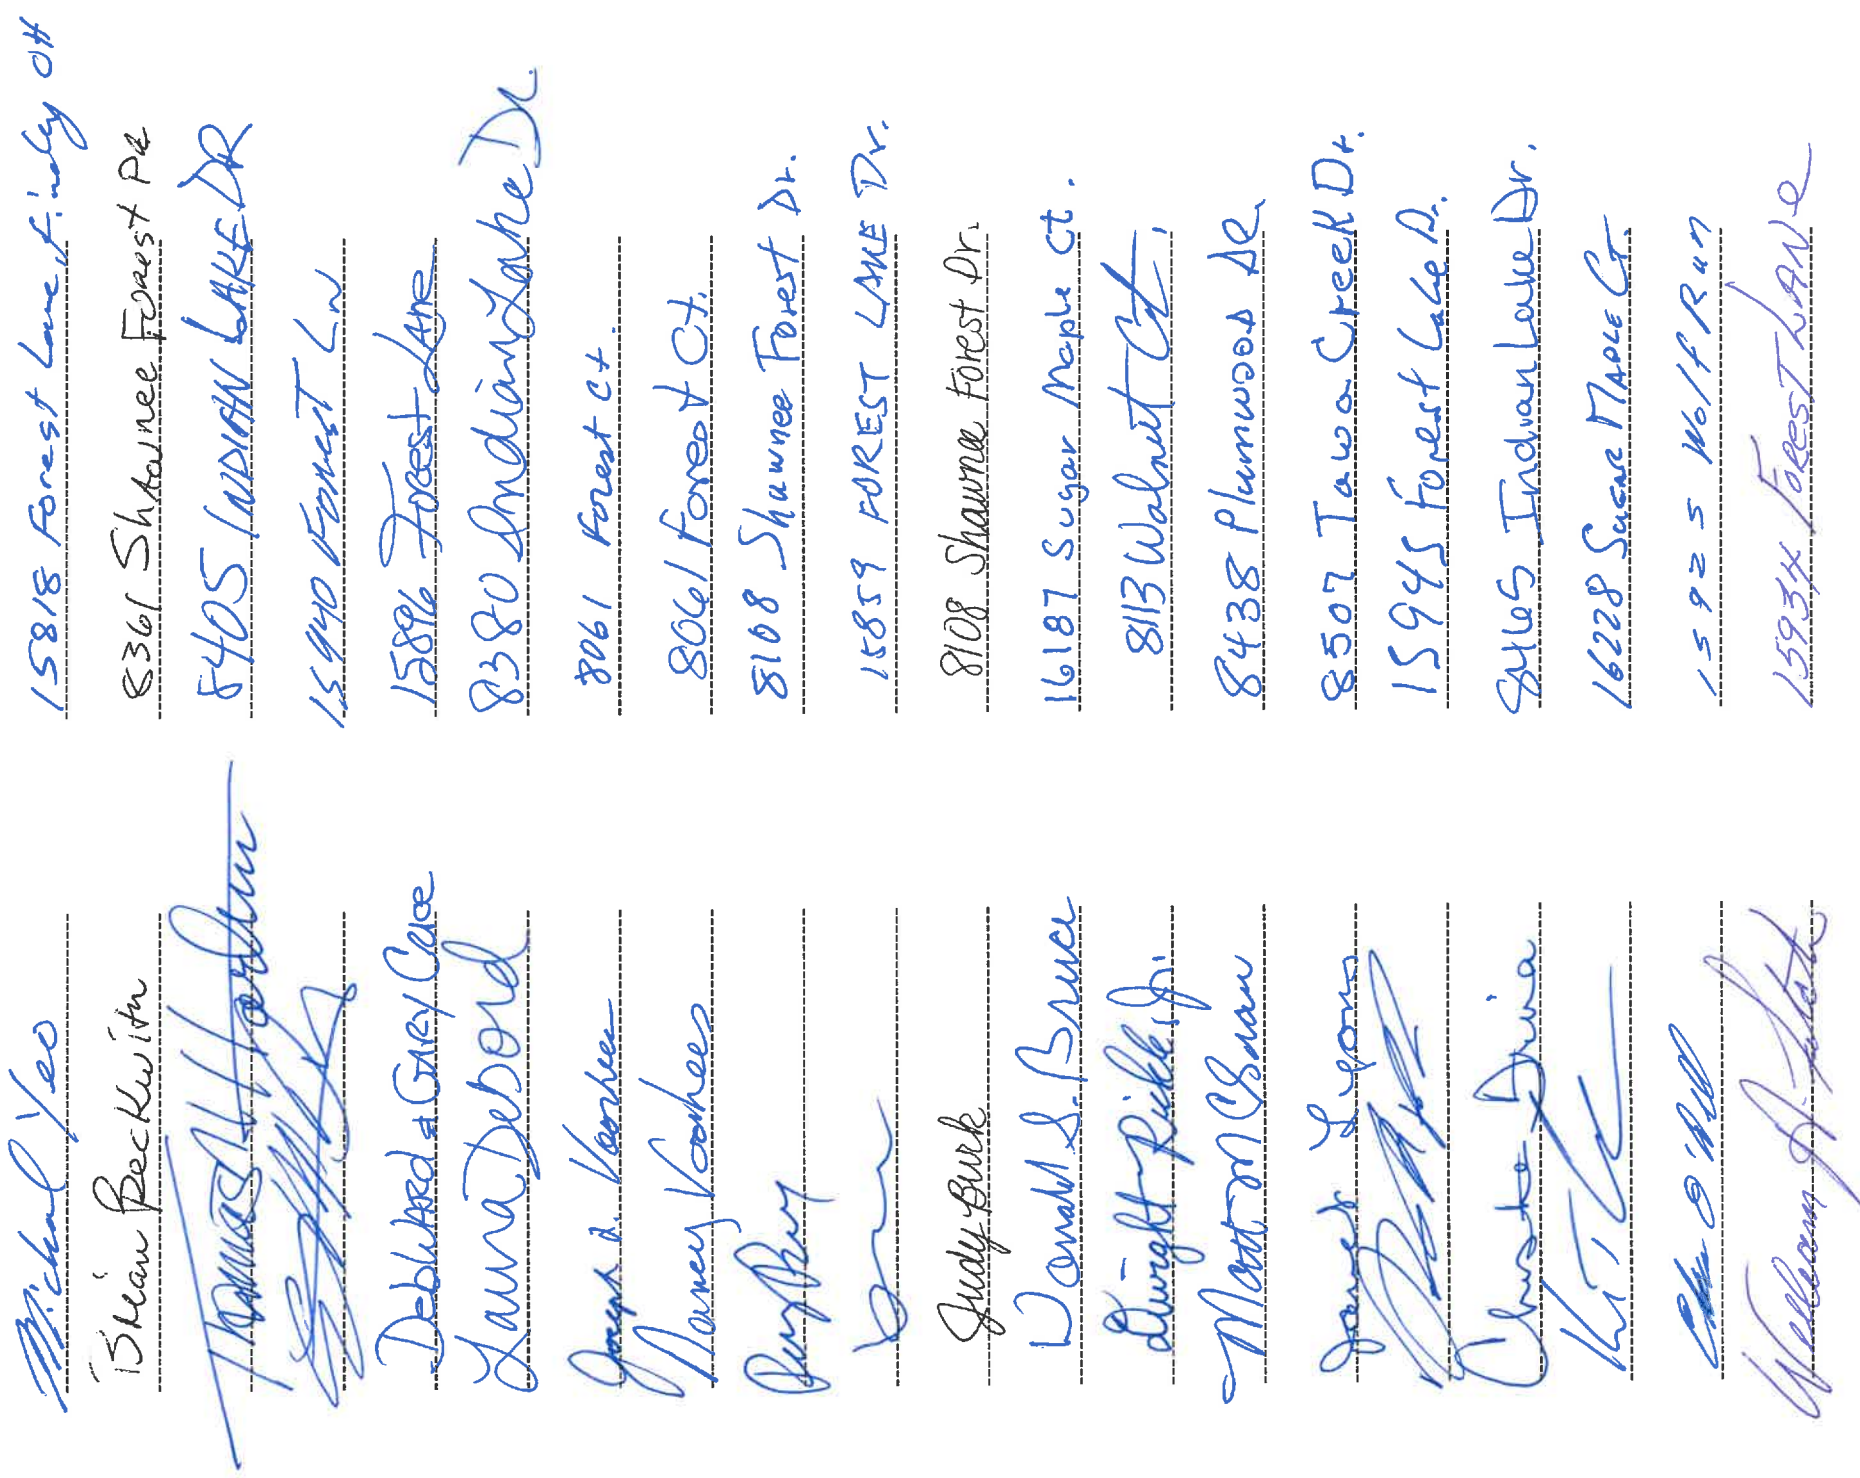 Michael Yeo 15818 Forest Lane, Findley OH
Brian Beckwith 8361 Shawnee Forest
Thomas H 8405 INDIAN LAKE DR
15940 Forest Ln
Deb WARD & GARY CASE 15896 Forest LAne
Laura DeBord 8380 Indian Lake Dr.
Joseph R. Voorhees 8061 Forest Ct.
Nancy Voorhees 8061 Forest Ct.
8108 Shawnee Forest Dr.
15859 FOREST LAKE Dr.
Judy Burk 8108 Shawnee Forest Dr.
Donald S. Bruce 16187 Sugar Maple Ct.
Dwight Rickle, Jr. 8113 Walnut Ct.
Matt M 8438 Plumwood DR
James Lyons 8507 Tawa Creek Dr.
15945 Forest Lake D.
8465 Indian Lake Dr.
16228 SUGAR MAPLE CT.
15925 Wolf Run
William A. 15934 Forest LANe